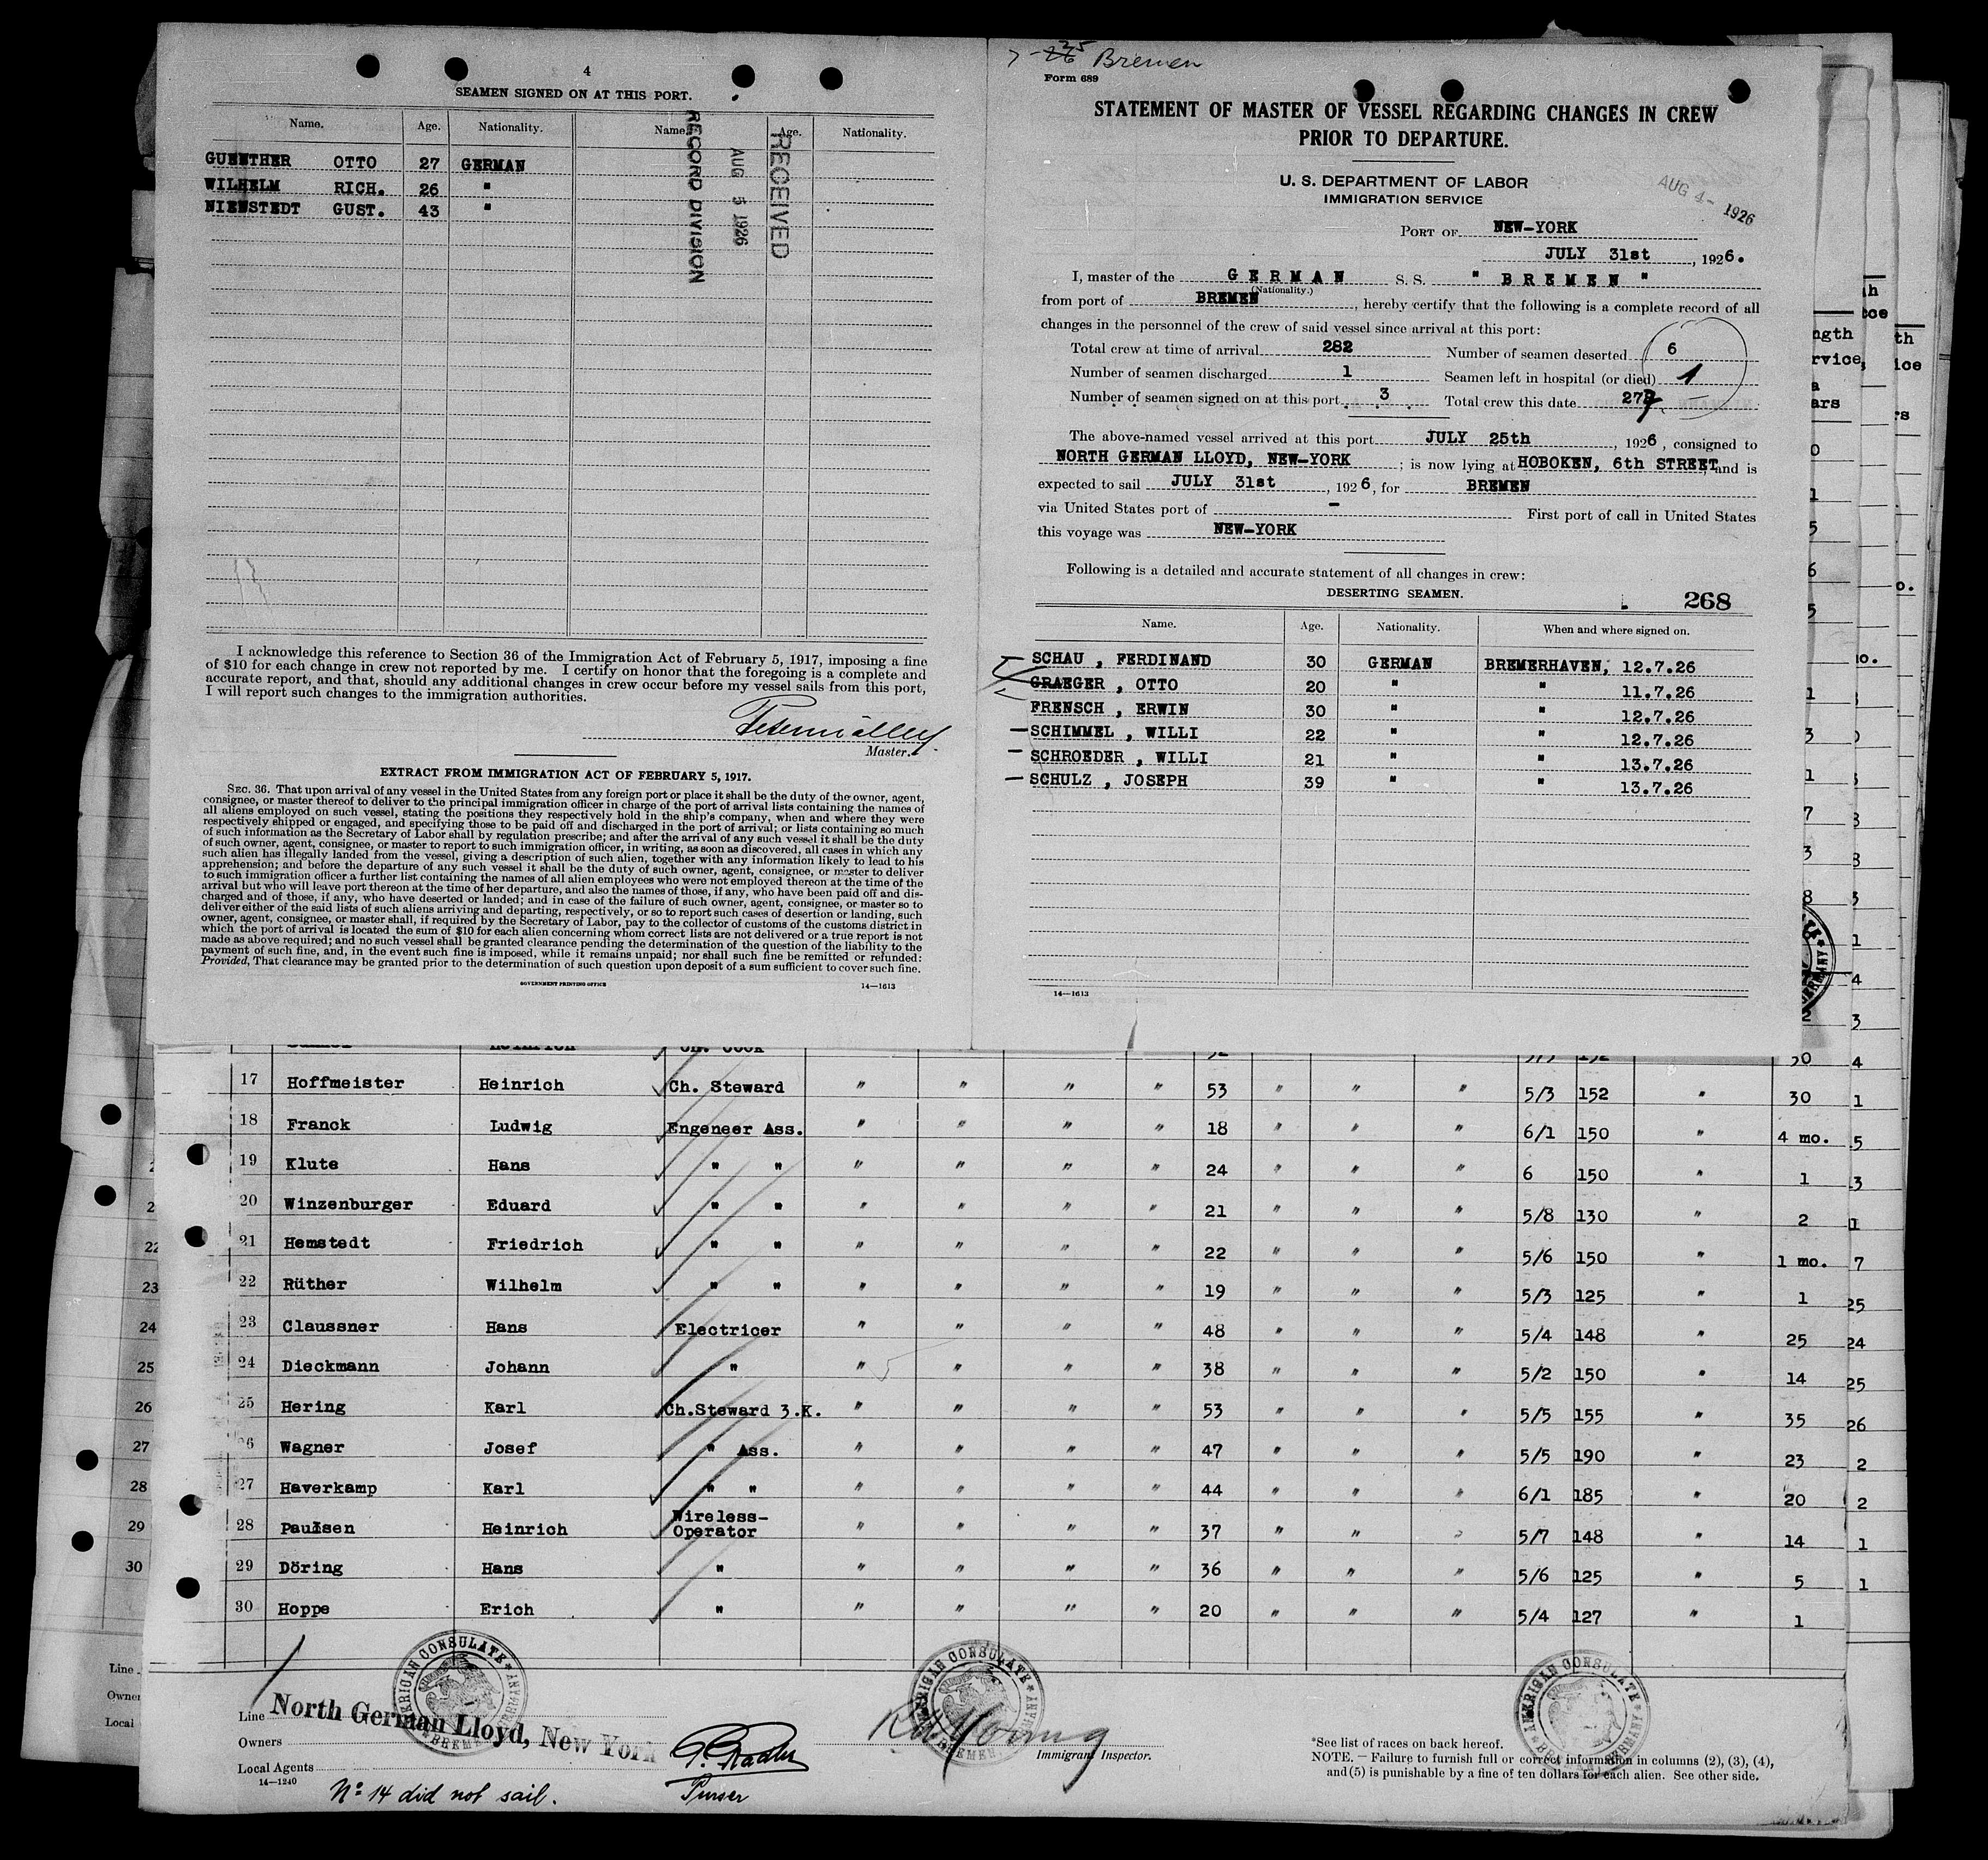 4
SEAMEN SIGNED ON AT THIS PORT.
Name. Age. Nationality. Name. Age. Nationality.
GUENTHER OTTO 27 GERMAN
WILHELM RICH. 26 "
NIENSTEDT GUST. 43 "
RECEIVED
AUG 5 1926
RECORD DIVISION
I acknowledge this reference to Section 36 of the Immigration Act of February 5, 1917, imposing a fine
of $10 for each change in crew not reported by me. I certify on honor that the foregoing is a complete and
accurate report, and that, should any additional changes in crew occur before my vessel sails from this port,
I will report such changes to the immigration authorities.
Master.
EXTRACT FROM IMMIGRATION ACT OF FEBRUARY 5, 1917.
SEC. 36. That upon arrival of any vessel in the United States from any foreign port or place it shall be the duty of the owner, agent,
consignee, or master thereof to deliver to the principal immigration officer in charge of the port of arrival lists containing the names of
all aliens employed on such vessel, stating the positions they respectively hold in the ship's company, when and where they were
respectively shipped or engaged, and specifying those to be paid off and discharged in the port of arrival; or lists containing so much
of such information as the Secretary of Labor shall by regulation prescribe; and after the arrival of any such vessel it shall be the duty
of such owner, agent, consignee, or master to report to such immigration officer, in writing, as soon as discovered, all cases in which any
such alien has illegally landed from the vessel, giving a description of such alien, together with any information likely to lead to his
apprehension; and before the departure of any such vessel it shall be the duty of such owner, agent, consignee, or master to deliver
to such immigration officer a further list containing the names of all alien employees who were not employed thereon at the time of the
arrival but who will leave port thereon at the time of her departure, and also the names of those, if any, who have been paid off and dis-
charged and of those, if any, who have deserted or landed; and in case of the failure of such owner, agent, consignee, or master so to
deliver either of the said lists of such aliens arriving and departing, respectively, or so to report such cases of desertion or landing, such
owner, agent, consignee, or master shall, if required by the Secretary of Labor, pay to the collector of customs of the customs district in
which the port of arrival is located the sum of $10 for each alien concerning whom correct lists are not delivered or a true report is not
made as above required; and no such vessel shall be granted clearance pending the determination of the question of the liability to the
payment of such fine, and, in the event such fine is imposed, while it remains unpaid; nor shall such fine be remitted or refunded:
Provided, That clearance may be granted prior to the determination of such question upon deposit of a sum sufficient to cover such fine.
GOVERNMENT PRINTING OFFICE 14—1613
7-25 Bremen
Form 689
STATEMENT OF MASTER OF VESSEL REGARDING CHANGES IN CREW
PRIOR TO DEPARTURE.
U. S. DEPARTMENT OF LABOR
IMMIGRATION SERVICE
AUG 4- 1926
PORT OF NEW-YORK
JULY 31st, 1926.
I, master of the GERMAN S. S. " BREMEN "
(Nationality.)
from port of BREMEN, hereby certify that the following is a complete record of all
changes in the personnel of the crew of said vessel since arrival at this port:
Total crew at time of arrival 282 Number of seamen deserted 6
Number of seamen discharged 1 Seamen left in hospital (or died) 1
Number of seamen signed on at this port 3 Total crew this date 277
The above-named vessel arrived at this port JULY 25th, 1926, consigned to
NORTH GERMAN LLOYD, NEW-YORK; is now lying at HOBOKEN, 6th STREET, and is
expected to sail JULY 31st, 1926, for BREMEN
via United States port of - First port of call in United States
this voyage was NEW-YORK
Following is a detailed and accurate statement of all changes in crew:
DESERTING SEAMEN.
268
Name. Age. Nationality. When and where signed on.
SCHAU , FERDINAND 30 GERMAN BREMERHAVEN, 12.7.26
GRAEGER , OTTO 20 " " 11.7.26
FRENSCH , ERWIN 30 " " 12.7.26
SCHIMMEL , WILLI 22 " " 12.7.26
SCHROEDER , WILLI 21 " " 13.7.26
SCHULZ , JOSEPH 39 " " 13.7.26
14—1613
17 Hoffmeister Heinrich Ch. Steward " " " " 53 " " " 5/3 152 " 30
18 Franck Ludwig Engeneer Ass. " " " " 18 " " " 6/1 150 " 4 mo.
19 Klute Hans " " " " " " 24 " " " 6 150 " 1
20 Winzenburger Eduard " " " " " " 21 " " " 5/8 130 " 2
21 Hemstedt Friedrich " " " " " " 22 " " " 5/6 150 " 1 mo.
22 Rüther Wilhelm " " " " " " 19 " " " 5/3 125 " 1
23 Claussner Hans Electricer " " " " 48 " " " 5/4 148 " 25
24 Dieckmann Johann " " " " " 38 " " " 5/2 150 " 14
25 Hering Karl Ch.Steward 3.K. " " " " 53 " " " 5/5 155 " 35
26 Wagner Josef " Ass. " " " " 47 " " " 5/5 190 " 23
27 Haverkamp Karl " " " " " " 44 " " " 6/1 185 " 20
28 Paulsen Heinrich Wireless-Operator " " " " 37 " " " 5/7 148 " 14
29 Döring Hans " " " " " 36 " " " 5/6 125 " 5
30 Hoppe Erich " " " " " 20 " " " 5/4 127 " 1
AMERICAN CONSULATE BREMEN GERMANY
AMERICAN CONSULATE BREMEN GERMANY
AMERICAN CONSULATE BREMEN GERMANY
Line North German Lloyd, New York
Owners
Local Agents
14—1240
No 14 did not sail.
Purser
Young
Immigrant Inspector.
*See list of races on back hereof.
NOTE. — Failure to furnish full or correct information in columns (2), (3), (4),
and (5) is punishable by a fine of ten dollars for each alien. See other side.
22
23
24
25
26
27
28
29
30
Line
Local